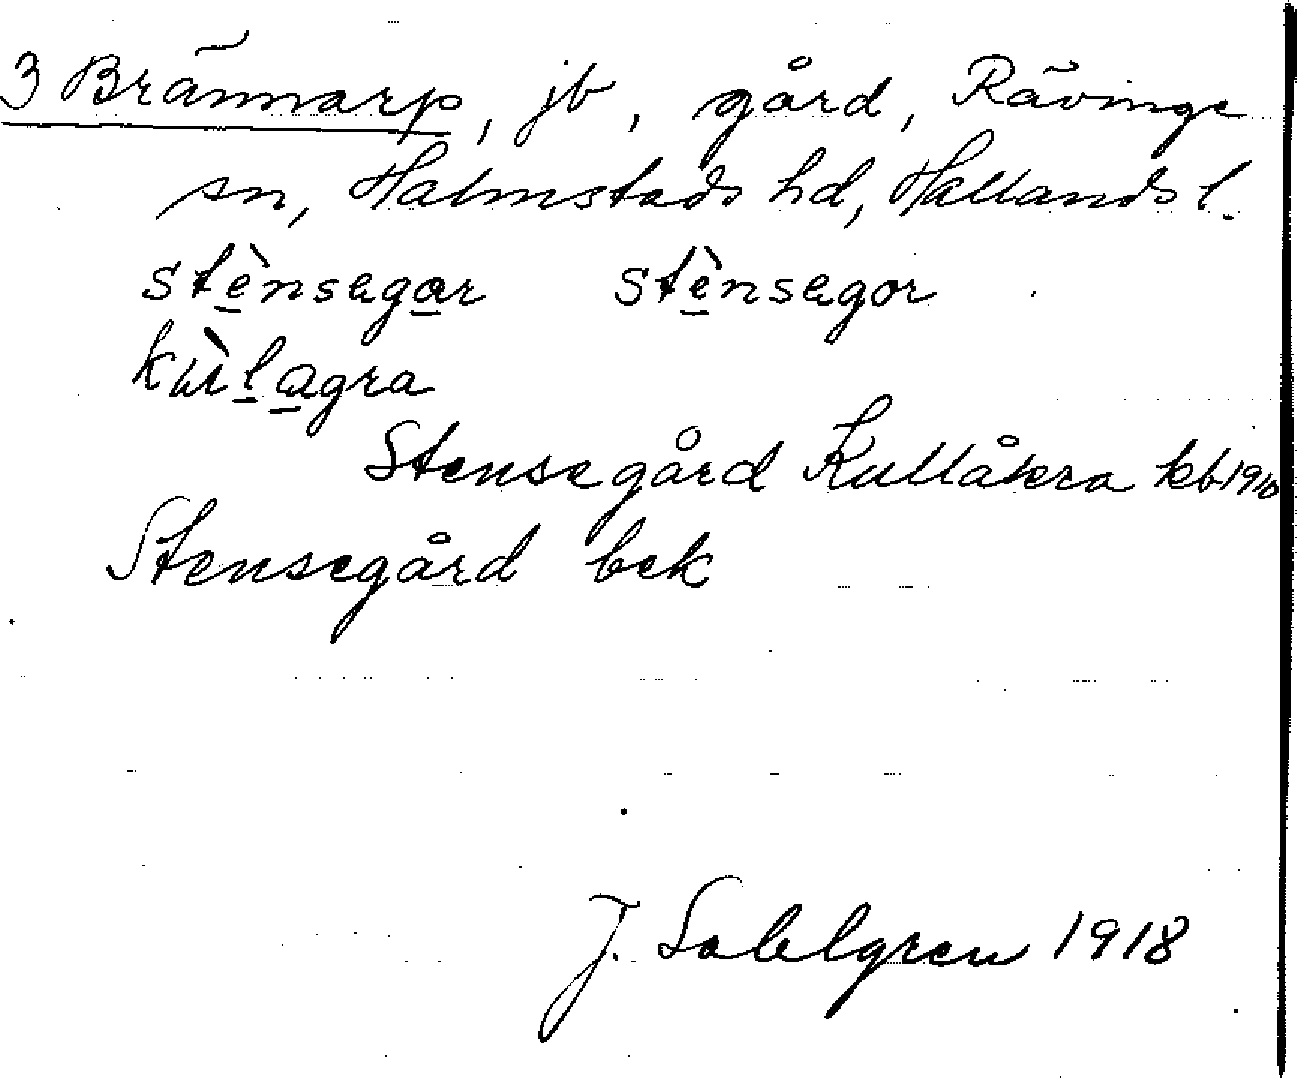 3 Brännarp, jb, gård, Rävinge
sn, Halmstads hd, Hallands l.
stènsegar stènsegor
kùlagra
Stensegård Kullåkra kb 1910
Stensegård bek
J. Sahlgren 1918